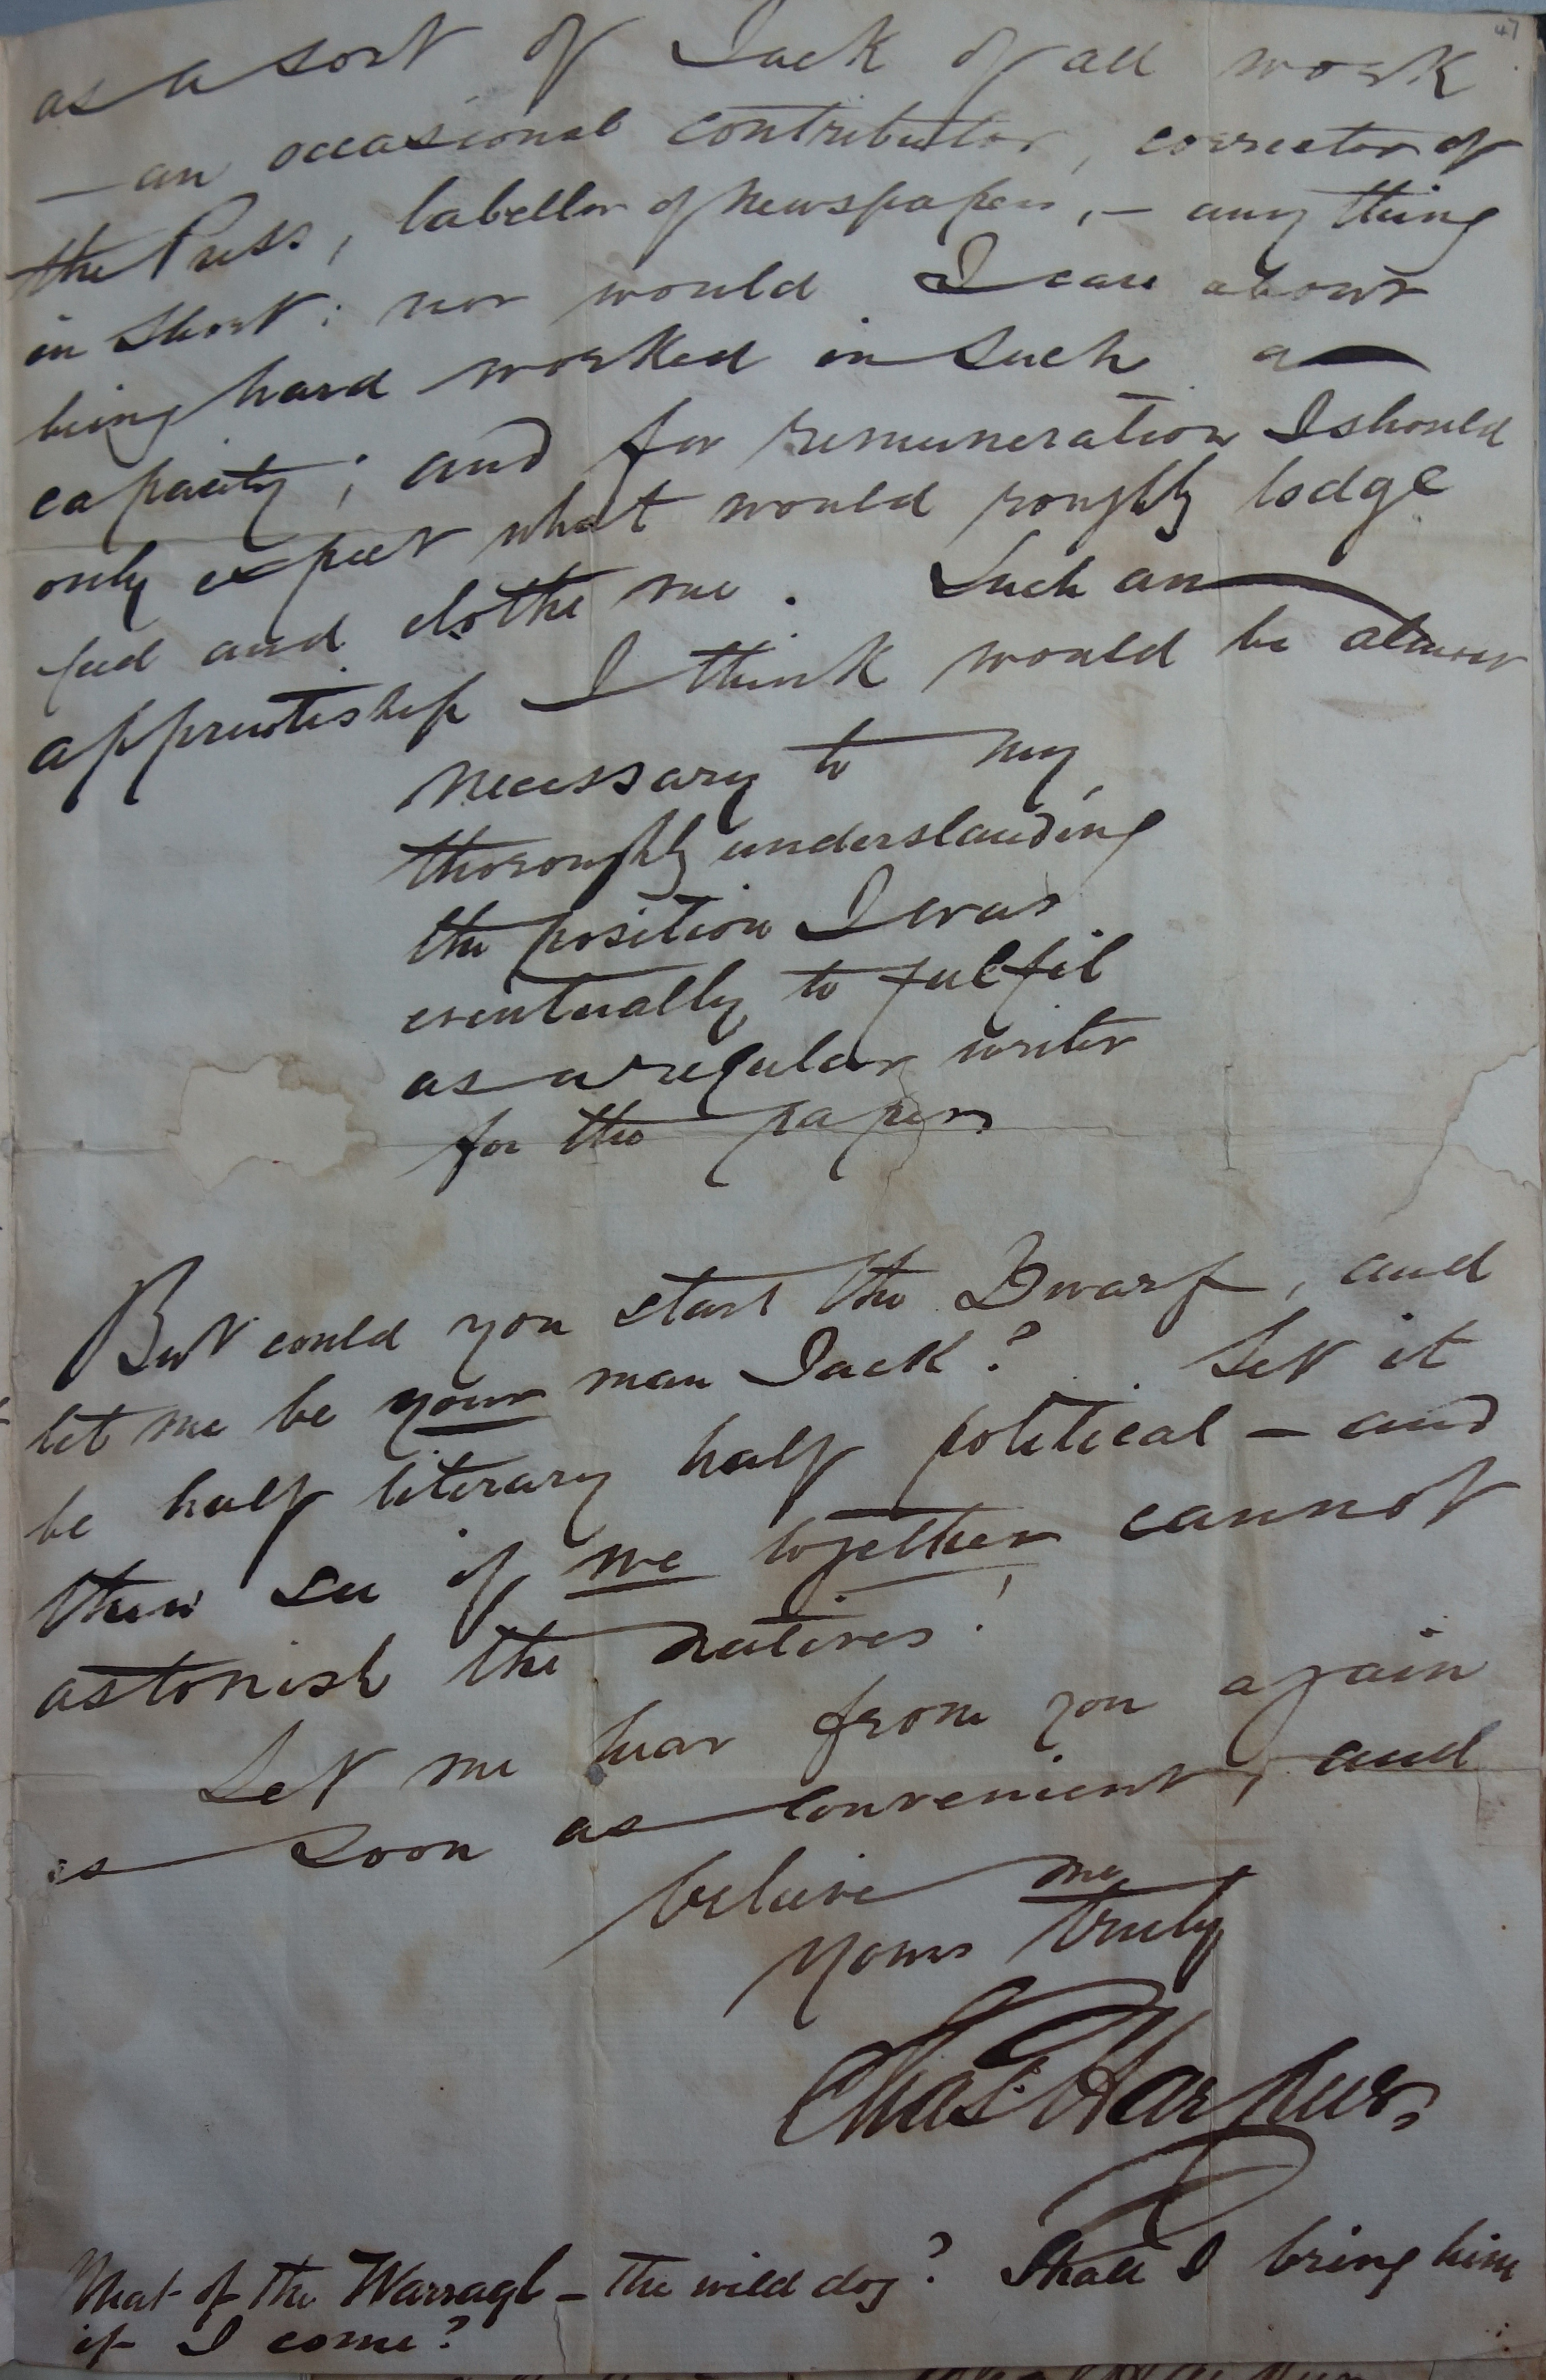 47
as a sort of Jack of all work
— an occasional contributor, corrector of
the Press, labeller of Newspapers, — any thing
in short: nor would I care about
being hard worked in such a
capacity; and for remuneration I should
only expect what would roughly lodge
feed and clothe me. Such an
apprenticeship I think would be almost
necessary to my
thoroughly understanding
the position I was
eventually to fulfil
as a regular writer
for the papers
But could you start the Dwarf, and
let me be your man Jack? Let it
be half literary half political — and
then see if we together cannot
astonish the natives!
Let me hear from you again
as soon as convenient, and
believe me
Yours truly
Chas. Harpur.
What of the Warragl — the wild dog? Shall I bring him
if I come?